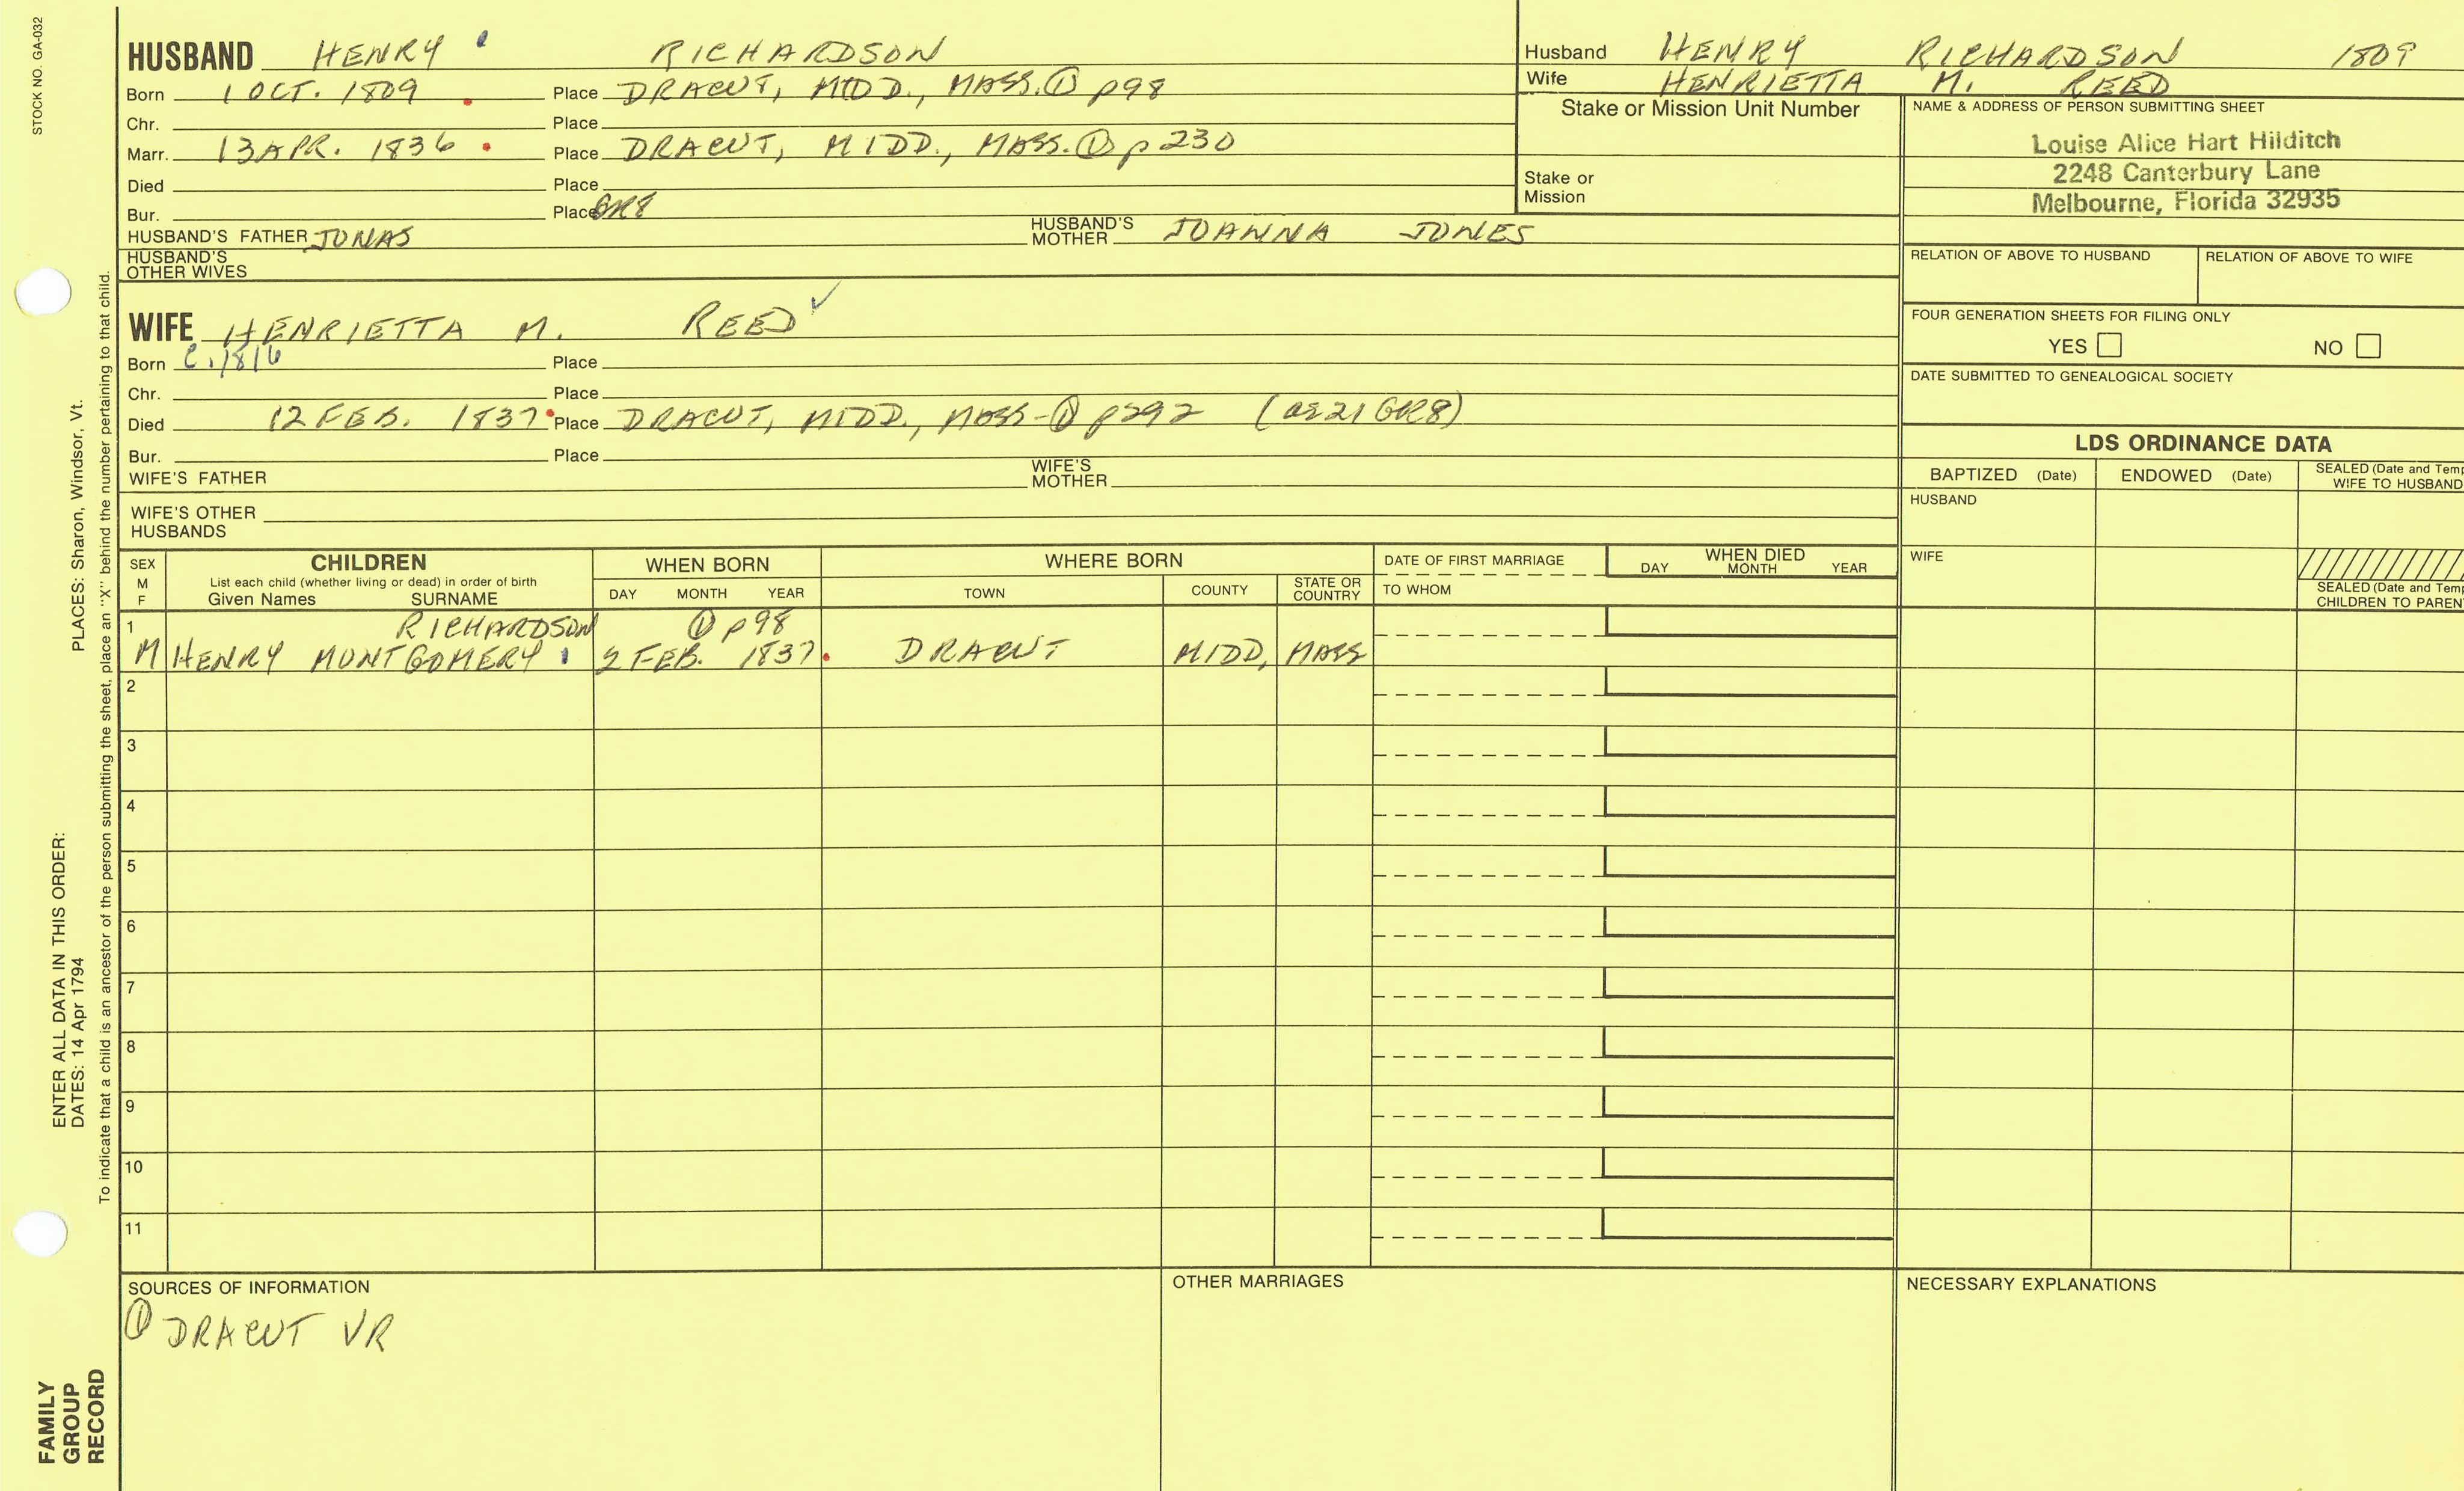 STOCK NO. GA-032
HUSBAND HENRY RICHARDSON
Born 1 OCT. 1809 Place DRACUT, MIDD., MASS. ① p98
Chr. Place
Marr. 13 APR. 1836 Place DRACUT, MIDD., MASS. ① p 230
Died Place
Bur. Place GR8
HUSBAND'S FATHER JONAS HUSBAND'S MOTHER JOANNA JONES
HUSBAND'S OTHER WIVES
Husband HENRY RICHARDSON 1809
Wife HENRIETTA M. REED
Stake or Mission Unit Number
Stake or
Mission
NAME & ADDRESS OF PERSON SUBMITTING SHEET
Louise Alice Hart Hilditch
2248 Canterbury Lane
Melbourne, Florida 32935
RELATION OF ABOVE TO HUSBAND RELATION OF ABOVE TO WIFE
FOUR GENERATION SHEETS FOR FILING ONLY
YES NO
DATE SUBMITTED TO GENEALOGICAL SOCIETY
WIFE HENRIETTA M. REED
Born C. 1816 Place
Chr. Place
Died 12 FEB. 1837 Place DRACUT, MIDD., MASS-① p292 (ae 21 GR8)
Bur. Place
WIFE'S FATHER WIFE'S MOTHER
WIFE'S OTHER
HUSBANDS
LDS ORDINANCE DATA
BAPTIZED (Date) ENDOWED (Date) SEALED (Date and Temp
WIFE TO HUSBAND
HUSBAND
WIFE
SEALED (Date and Temp
CHILDREN TO PAREN
SEX
M
F
CHILDREN
List each child (whether living or dead) in order of birth
Given Names SURNAME
WHEN BORN
DAY MONTH YEAR
WHERE BORN
TOWN COUNTY STATE OR COUNTRY
DATE OF FIRST MARRIAGE
TO WHOM
WHEN DIED
DAY MONTH YEAR
1 RICHARDSON ① p98
M HENRY MONTGOMERY 2 FEB. 1837 DRACUT MIDD, MASS
2
3
4
5
6
7
8
9
10
11
SOURCES OF INFORMATION
① DRACUT VR
OTHER MARRIAGES
NECESSARY EXPLANATIONS
ENTER ALL DATA IN THIS ORDER:
DATES: 14 Apr 1794 PLACES: Sharon, Windsor, Vt.
To indicate that a child is an ancestor of the person submitting the sheet, place an "X" behind the number pertaining to that child.
FAMILY
GROUP
RECORD